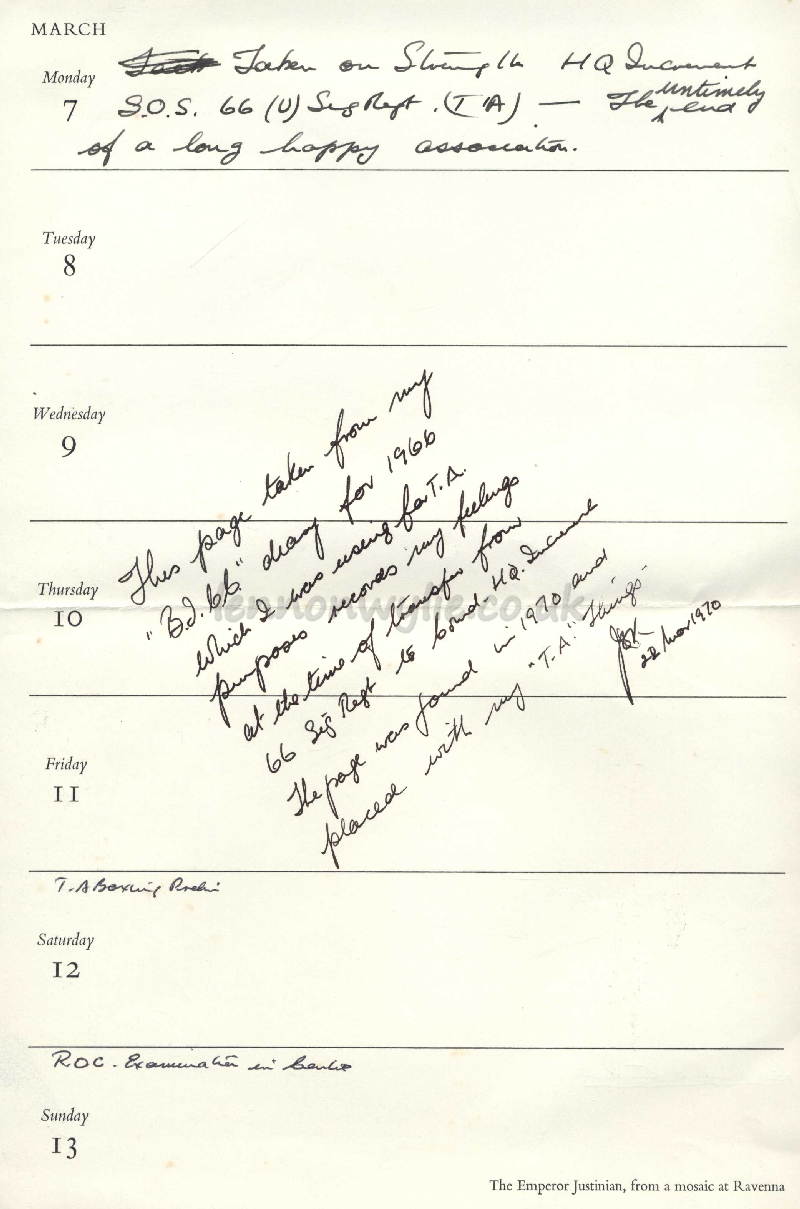 MARCH
Monday
7
Taken on Strength HQ Increment
S.O.S. 66 (U) Sig Regt. (TA) — The untimely end
of a long happy association.
Tuesday
8
Wednesday
9
This page taken from my
"B.J. 66" diary for 1966
which I was using for T.A.
purposes records my feelings
at the time of transfer from
66 Sig Regt to HQ. Increment
The page was found in 1970 and
placed with my "T.A." Things -
22 Mar 1970
lennonwylie.co.uk
Thursday
10
Friday
11
T.A Boxing
Saturday
12
R.O.C. Examination in
Sunday
13
The Emperor Justinian, from a mosaic at Ravenna